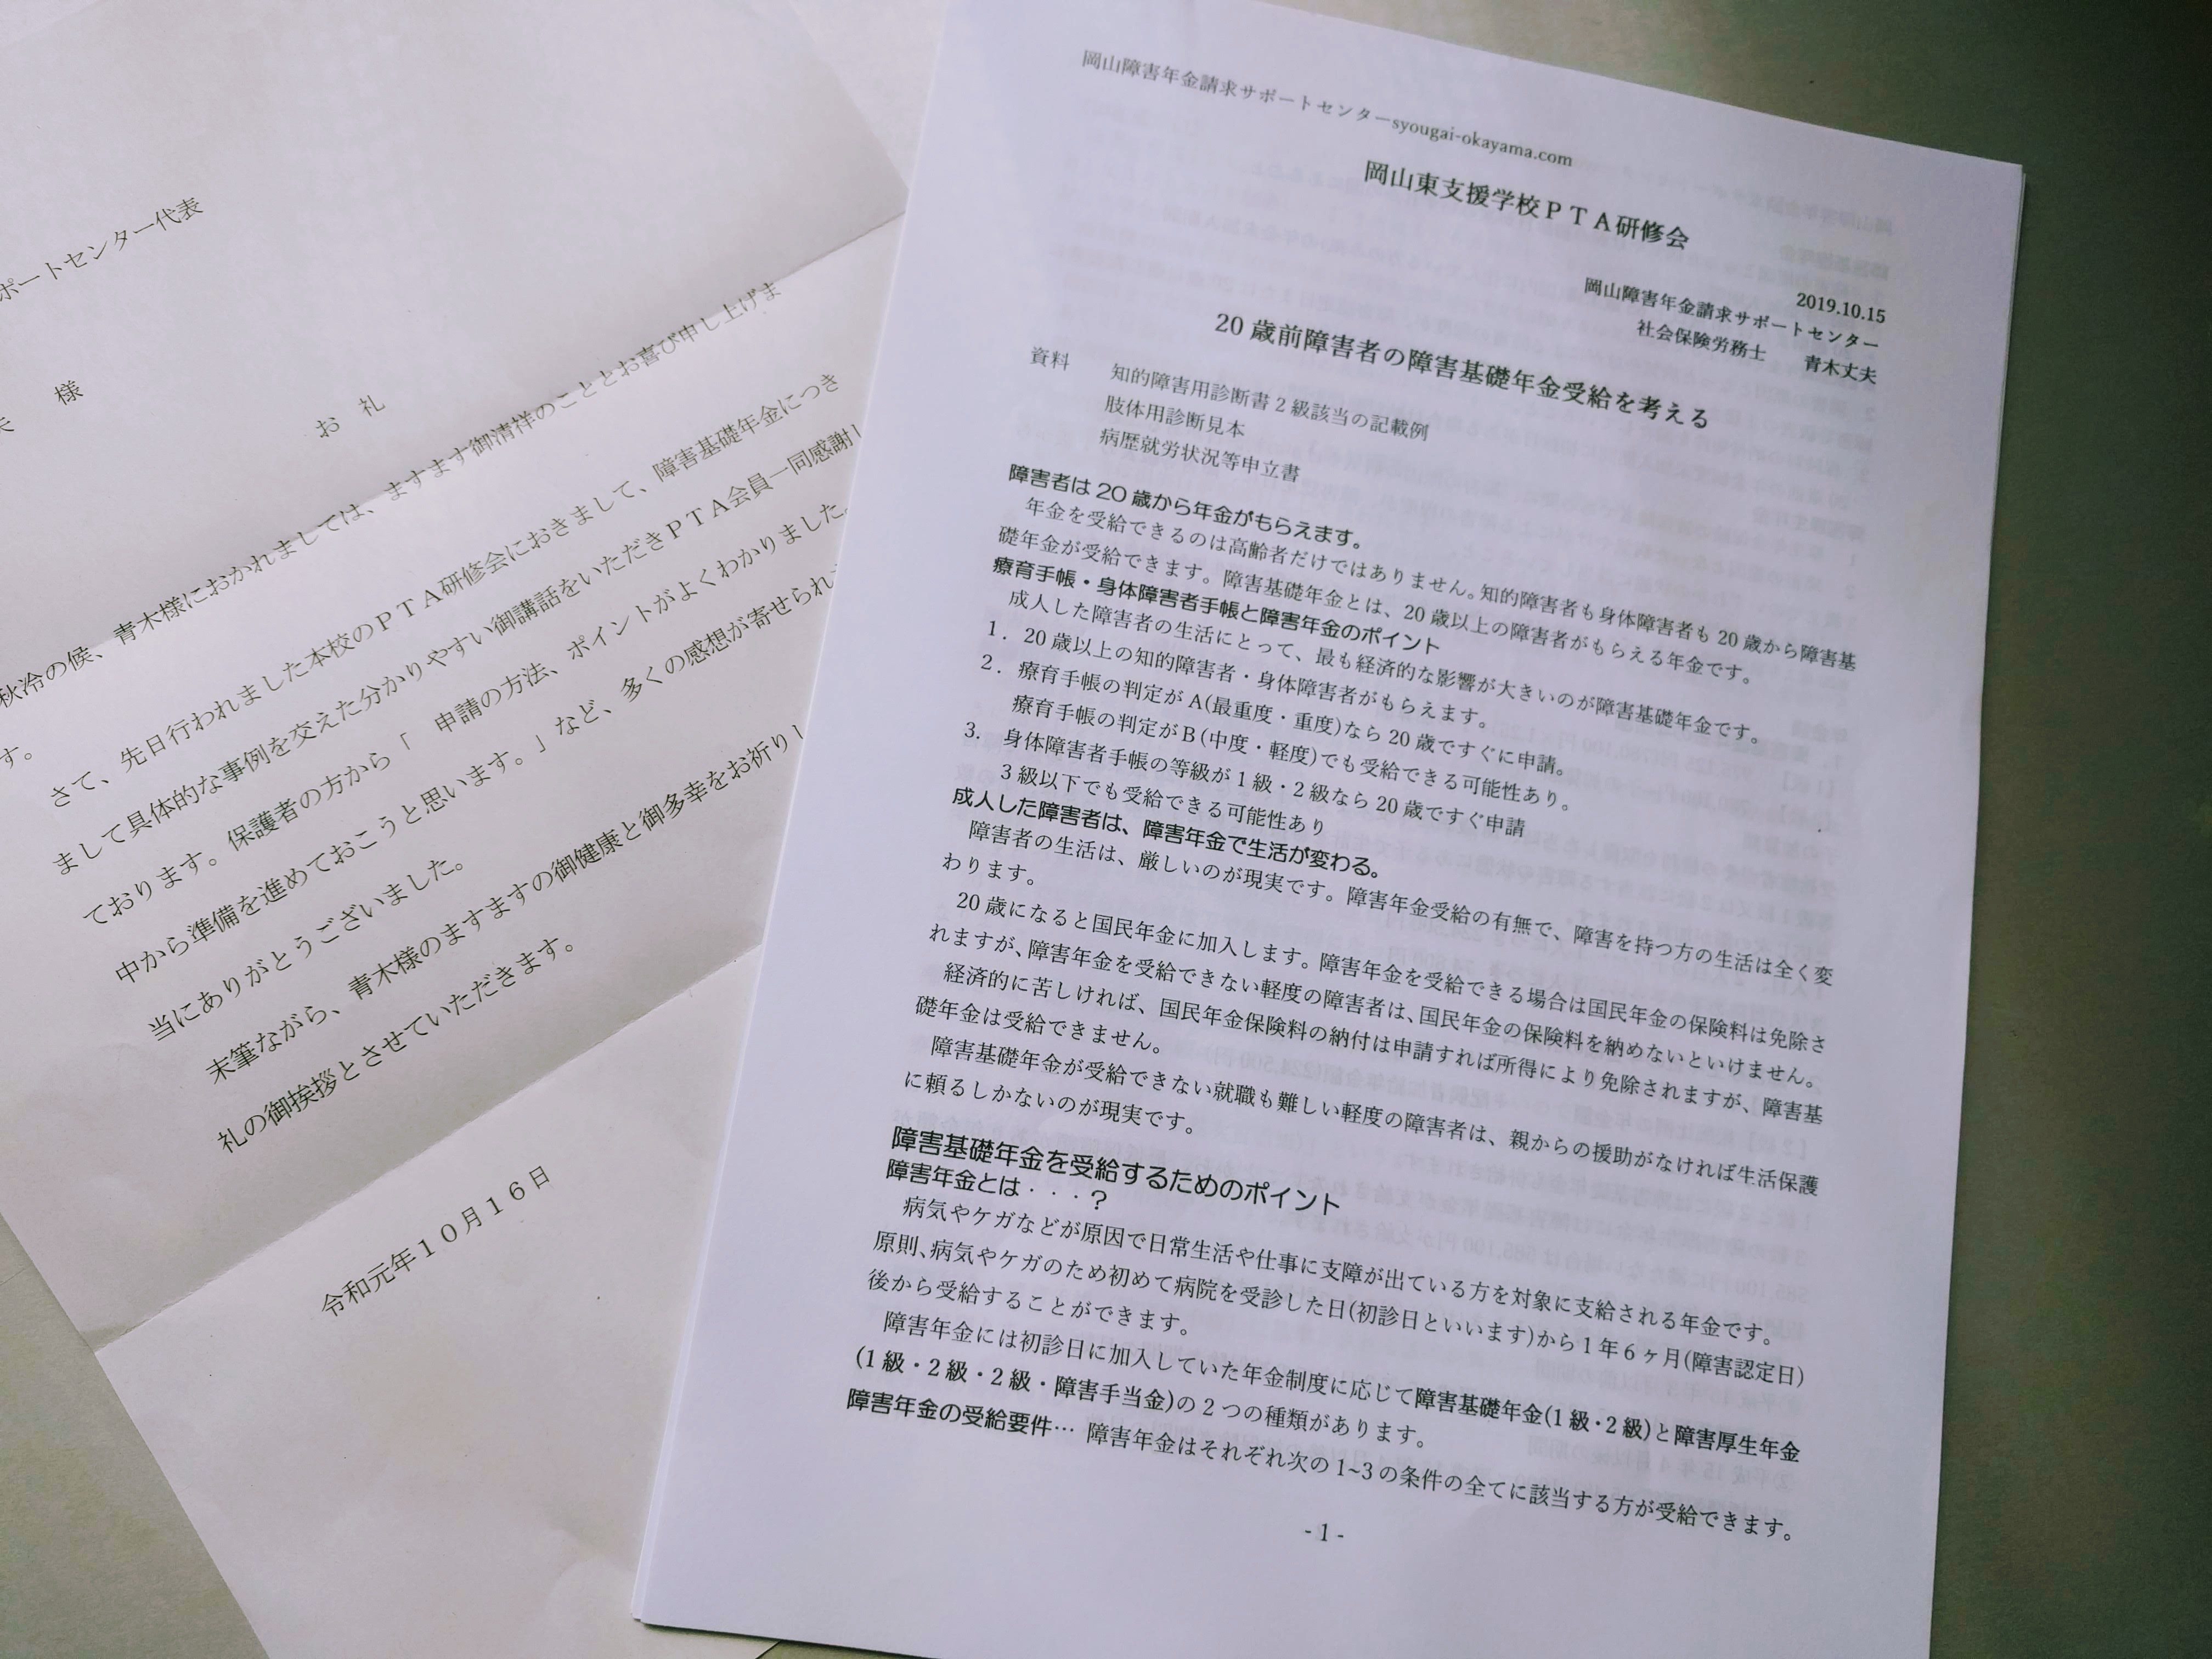 ポートセンター代表
様
お 礼
秋冷の候、青木様におかれましては、ますます御清祥のこととお喜び申し上げま
す。
さて、先日行われました本校のＰＴＡ研修会におきまして、障害基礎年金につき
まして具体的な事例を交えた分かりやすい御講話をいただきＰＴＡ会員一同感謝し
ております。保護者の方から「 申請の方法、ポイントがよくわかりました。
中から準備を進めておこうと思います。」など、多くの感想が寄せられ
当にありがとうございました。
末筆ながら、青木様のますますの御健康と御多幸をお祈りし
礼の御挨拶とさせていただきます。
令和元年１０月１６日
岡山障害年金請求サポートセンターsyougai-okayama.com
岡山東支援学校ＰＴＡ研修会
2019.10.15
岡山障害年金請求サポートセンター
社会保険労務士 青木丈夫
20 歳前障害者の障害基礎年金受給を考える
資料 知的障害用診断書２級該当の記載例
肢体用診断見本
病歴就労状況等申立書
障害者は 20 歳から年金がもらえます。
年金を受給できるのは高齢者だけではありません。知的障害者も身体障害者も 20 歳から障害基
礎年金が受給できます。障害基礎年金とは、20 歳以上の障害者がもらえる年金です。
療育手帳・身体障害者手帳と障害年金のポイント
成人した障害者の生活にとって、最も経済的な影響が大きいのが障害基礎年金です。
１．20 歳以上の知的障害者・身体障害者がもらえます。
２．療育手帳の判定が A(最重度・重度)なら 20 歳ですぐに申請。
療育手帳の判定がＢ(中度・軽度)でも受給できる可能性あり。
3. 身体障害者手帳の等級が１級・２級なら 20 歳ですぐ申請
３級以下でも受給できる可能性あり
成人した障害者は、障害年金で生活が変わる。
障害者の生活は、厳しいのが現実です。障害年金受給の有無で、障害を持つ方の生活は全く変
わります。
20 歳になると国民年金に加入します。障害年金を受給できる場合は国民年金の保険料は免除さ
れますが、障害年金を受給できない軽度の障害者は、国民年金の保険料を納めないといけません。
経済的に苦しければ、国民年金保険料の納付は申請すれば所得により免除されますが、障害基
礎年金は受給できません。
障害基礎年金が受給できない就職も難しい軽度の障害者は、親からの援助がなければ生活保護
に頼るしかないのが現実です。
障害基礎年金を受給するためのポイント
障害年金とは・・・？
病気やケガなどが原因で日常生活や仕事に支障が出ている方を対象に支給される年金です。
原則、病気やケガのため初めて病院を受診した日(初診日といいます)から１年６ヶ月(障害認定日)
後から受給することができます。
障害年金には初診日に加入していた年金制度に応じて障害基礎年金(１級・２級)と障害厚生年金
(１級・２級・２級・障害手当金)の２つの種類があります。
障害年金の受給要件… 障害年金はそれぞれ次の 1~3 の条件の全てに該当する方が受給できます。
- 1 -